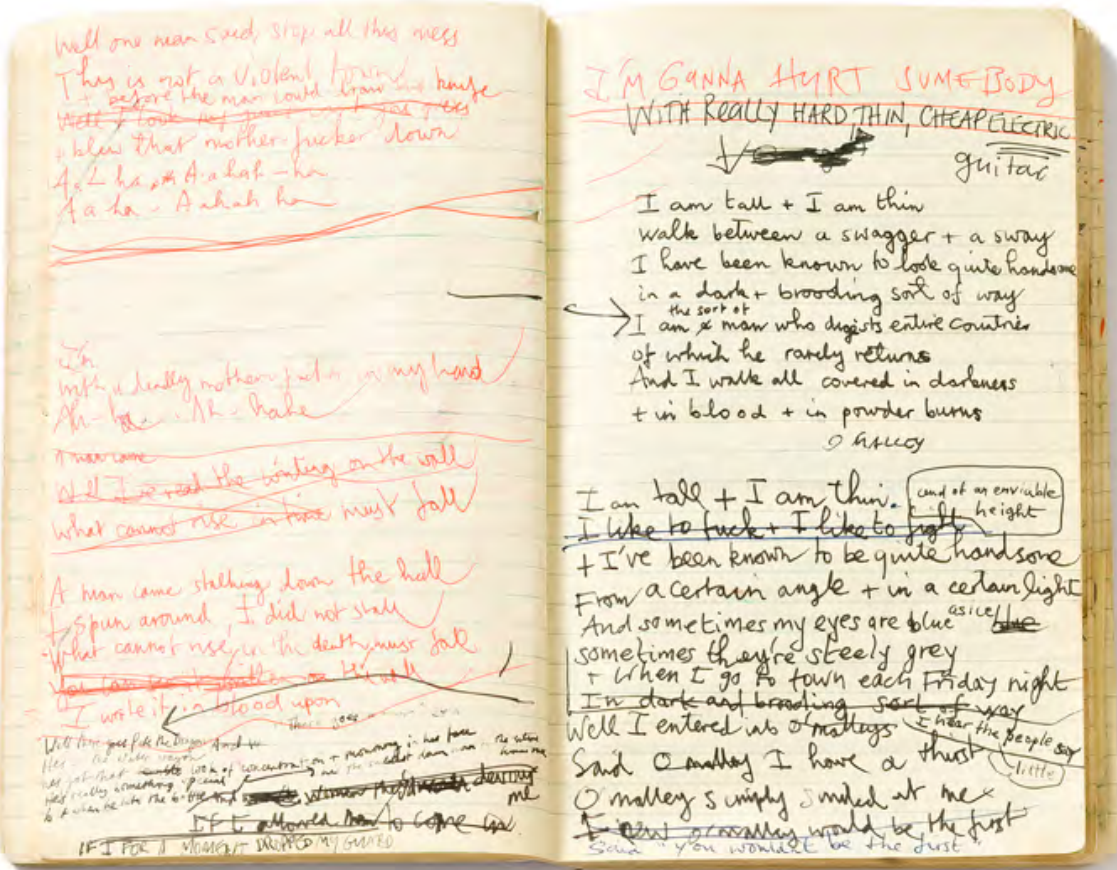 Well one man said, stop all this mess
This is not a violent town
+ before the man could draw his knife
Well I look
+ blew that mother-fucker down
A-L ha A-a hah - ha
A a ha - A ahah ha
I'm
with a deadly mother-fucker in my hand
Ah-ha . Ah - haha
A man came
Well I've read the writing on the wall
what cannot rise in time must fall
A man came stalking down the hall
+ spun around, I did not stall
What cannot rise, in the death, must fall
I wrote it in blood upon
There goes
look of concentration + mourning in his face
He's really something special
women
destroy
me
If I allowed to come in.
IF I FOR A MOMENT DROPPED MY GUARD
I'M GUNNA HURT SUMEBODY
WITH REALLY HARD, THIN, CHEAP ELECTRIC
guitar
I am tall + I am thin
walk between a swagger + a sway
I have been known to look quite handsome
in a dark + brooding sort of way
the sort of
I am man who digests entire countries
of which he rarely returns
And I walk all covered in darkness
+ in blood + in powder burns
O MALLEY
I am tall + I am thin.
and of an enviable
height
I like to fuck + I like to fight
+ I've been known to be quite handsome
From a certain angle + in a certain light
And sometimes my eyes are blue as ice blue
sometimes they're steely grey
+ when I go to town each Friday night
In dark and brooding sort of way
I hear the people say
Well I entered into O'malleys
little
Said O malley I have a thirst
O malley simply smiled at me
I new o malley would be the first
Said "you wouldn't be the first"